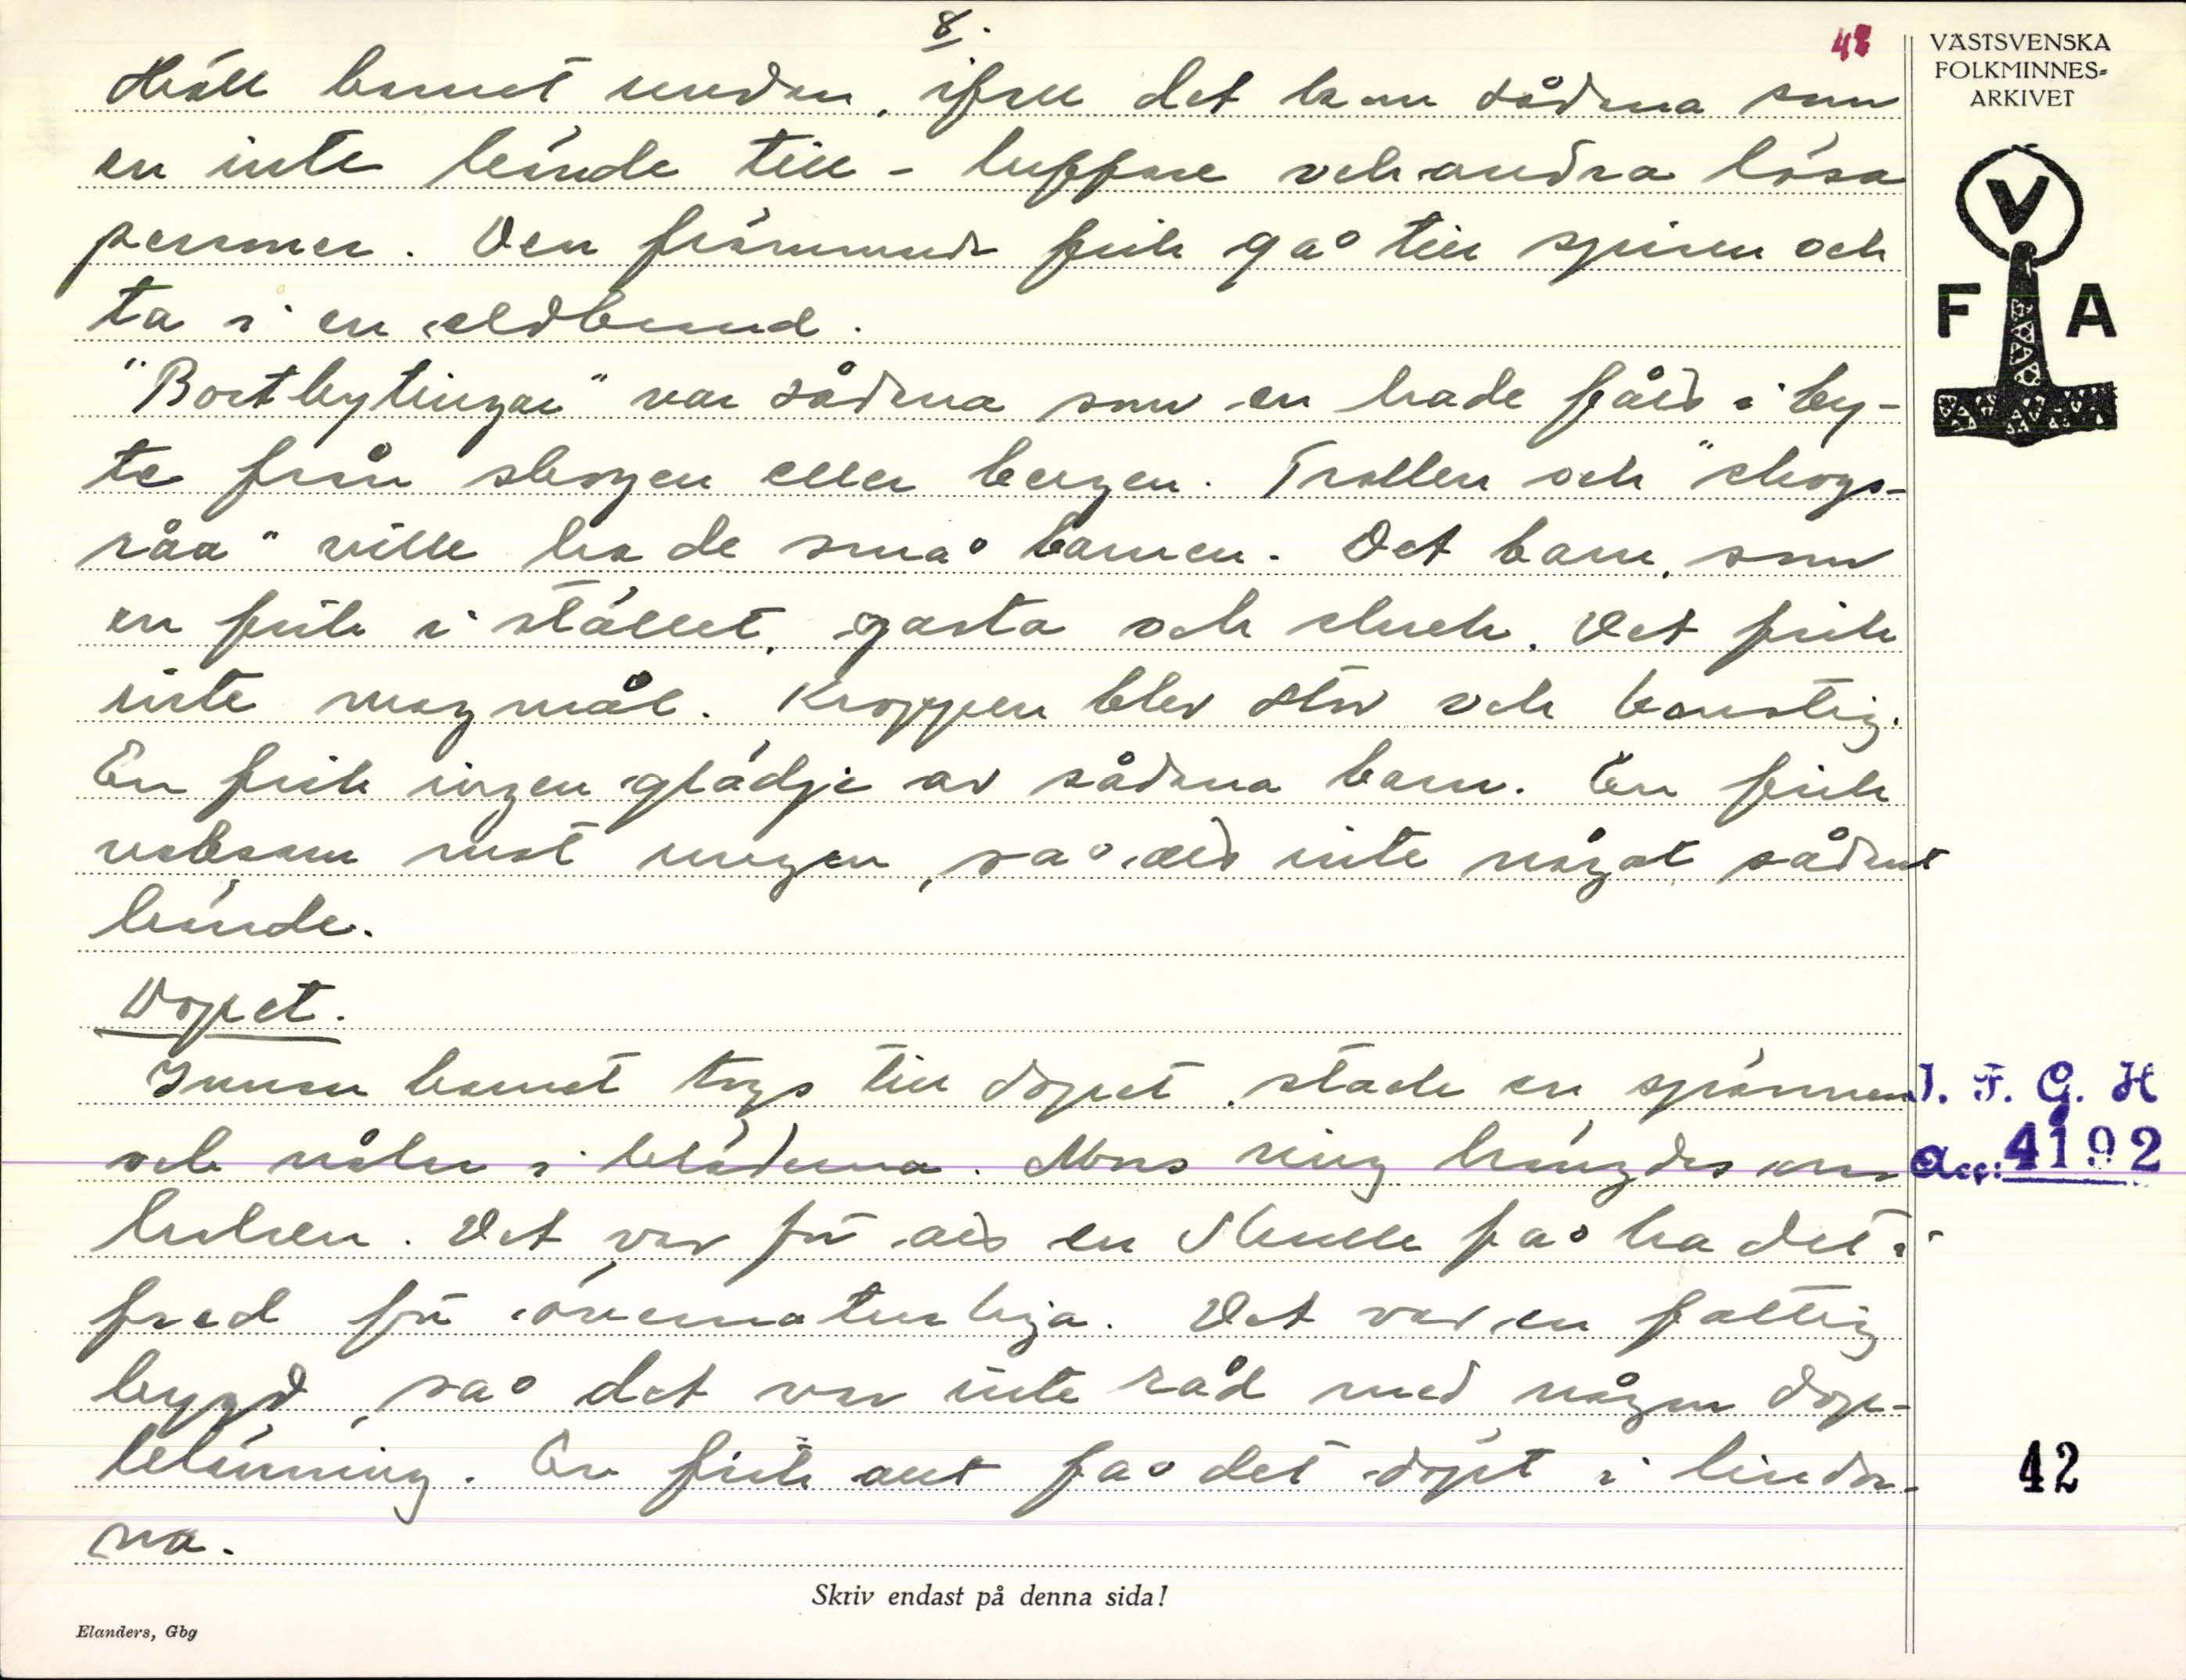 8.
48
VÄSTSVENSKA
FOLKMINNES-
ARKIVET
V
F A
Håll barnet undan, ifall det kom sådana som
en inte kände till - luffare och andra lösa
personer. Den främmande fick gå till spisen och
ta i en eldbrand.
"Bortbytingar" var sådana som en hade fått i by-
te från skogen eller bergen. Trollen och "skogs-
råa" ville ha de små barnen. Det barn, som
en fick i stället, gasta och skrek. Det fick
inte magmål. Kroppen blev stor och konstig.
En fick ingen glädje av sådana barn. En fick
vaksam mot ungen, så att inte något sådant
hände.
Dopet.
Innan barnet togs till dopet, stack en spännen
och nålar i kläderna. Mors ring hängdes om
halsen. Det var för att en skulle få ha det i
fred för övernaturliga. Det var en fattig
bygd, så det var inte råd med någon dop-
klänning. En fick att få det döpt i lindor-
na.
I. F. G. H
Acc: 4192
42
Skriv endast på denna sida!
Elanders, Gbg